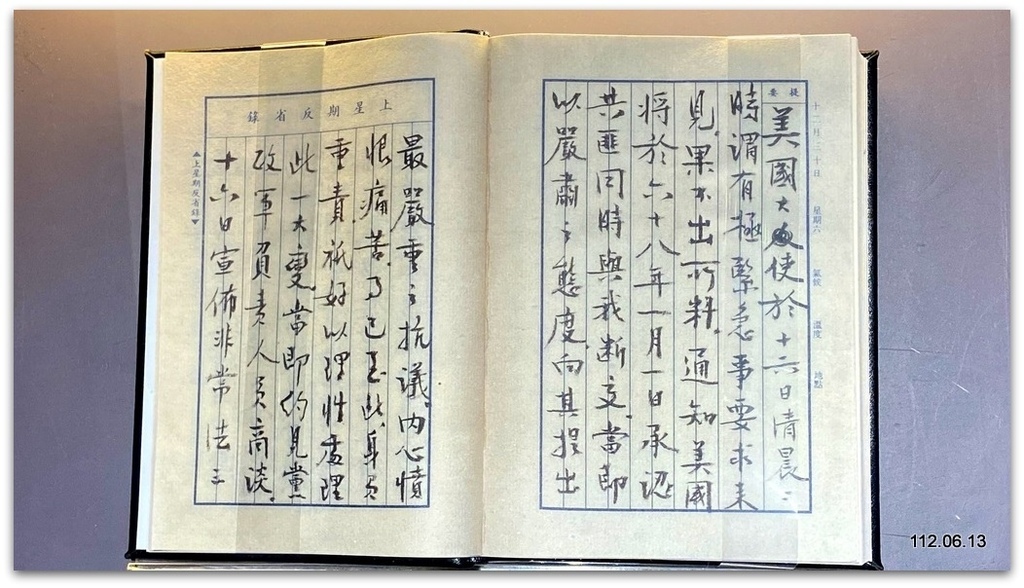 十二月三十日 星期六 氣候 溫度 地點
提要
美國大使於十六日清晨二
時謂有極緊急事要求来
見，果不出所料，通知美國
將於六十八年一月一日承認
共匪同時與我斷交，當即
以嚴肅之態度向其提出
上星期反省錄
最嚴重之抗議，內心憤
恨痛苦，事已至此，身負
重責祇好以理性處理
此一大變，當即約見黨
政軍負責人員商談，
十六日宣佈非常法三
▲上星期反省錄▼
112.06.13